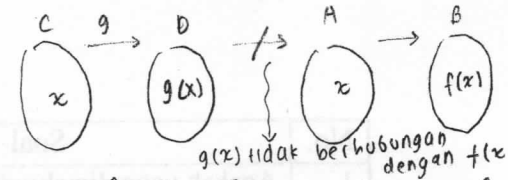 C g D A B
x g(x) x f(x)
g(x) tidak berhubungan
dengan f(x